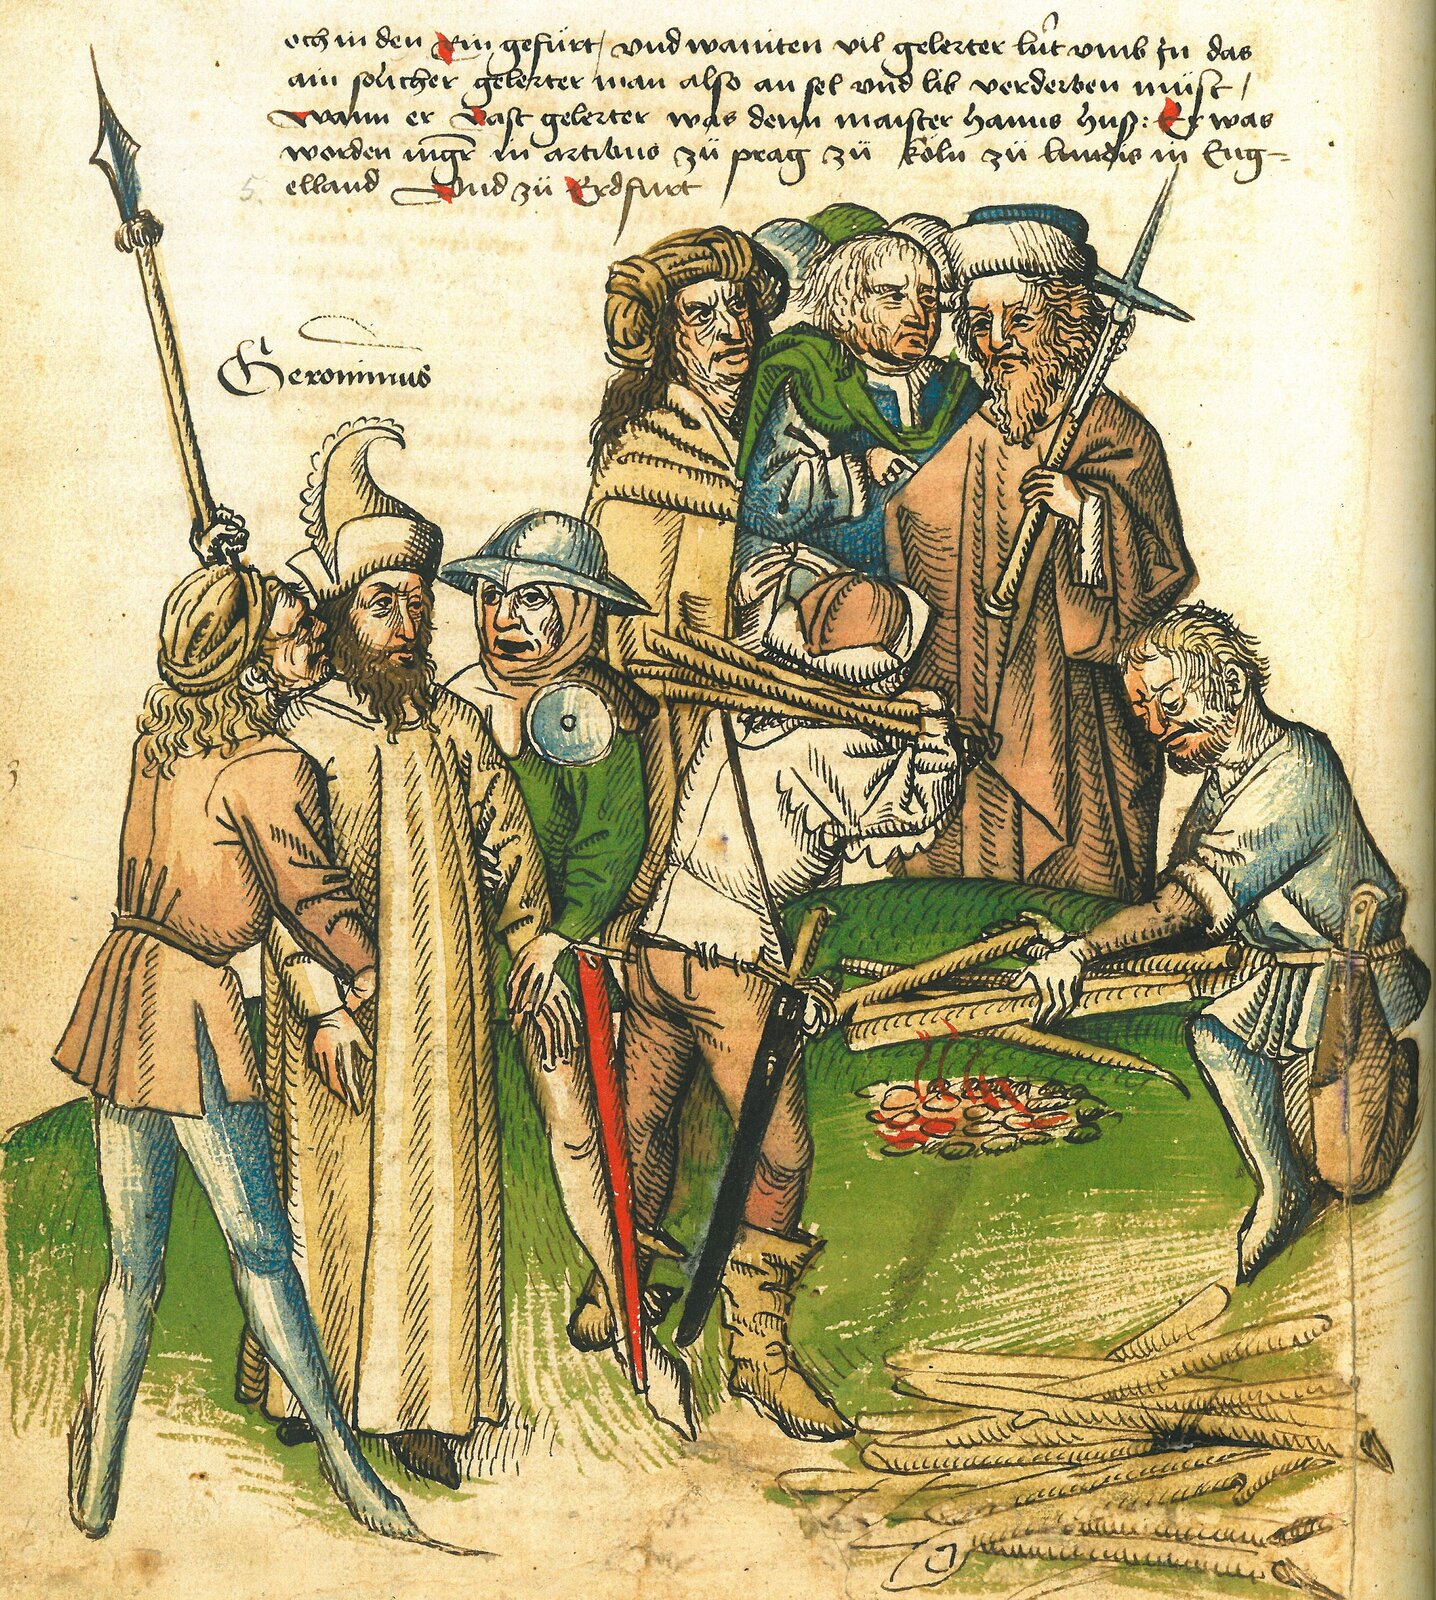 och in den Rin gefürt / vnd wainten vil gelerter lüt vmb In das
ain sölicher gelerter man also an sel vnd lib verderben müst /
Wann er Vast gelerter was denn maister hanns huß: Er was
worden mgr in artibus zü prag zü köln zü in Eng=
elland Vnd zü Erdfurt
5.
Geronimus